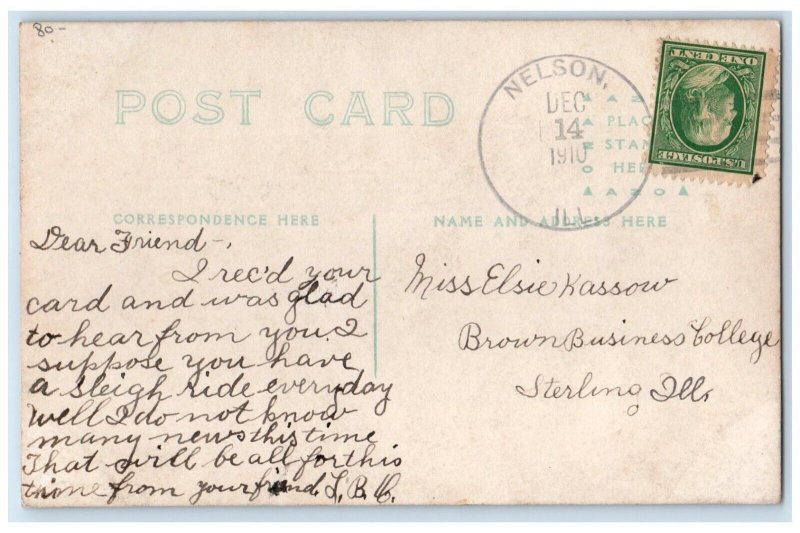 80-
POST CARD
NELSON,
DEC
14
1910
ILL.
AZO
PLACE
STAMP
HERE
AZO
ONE CENT
U.S. POSTAGE
CORRESPONDENCE HERE
NAME AND ADDRESS HERE
Dear Friend-,
I rec'd your
card and was glad
to hear from you I
suppose you have
a sleigh ride everyday
Well I do not know
many news this time
That will be all for this
time from your friend.
Miss Elsie Kassow
Brown Business College
Sterling Ill.